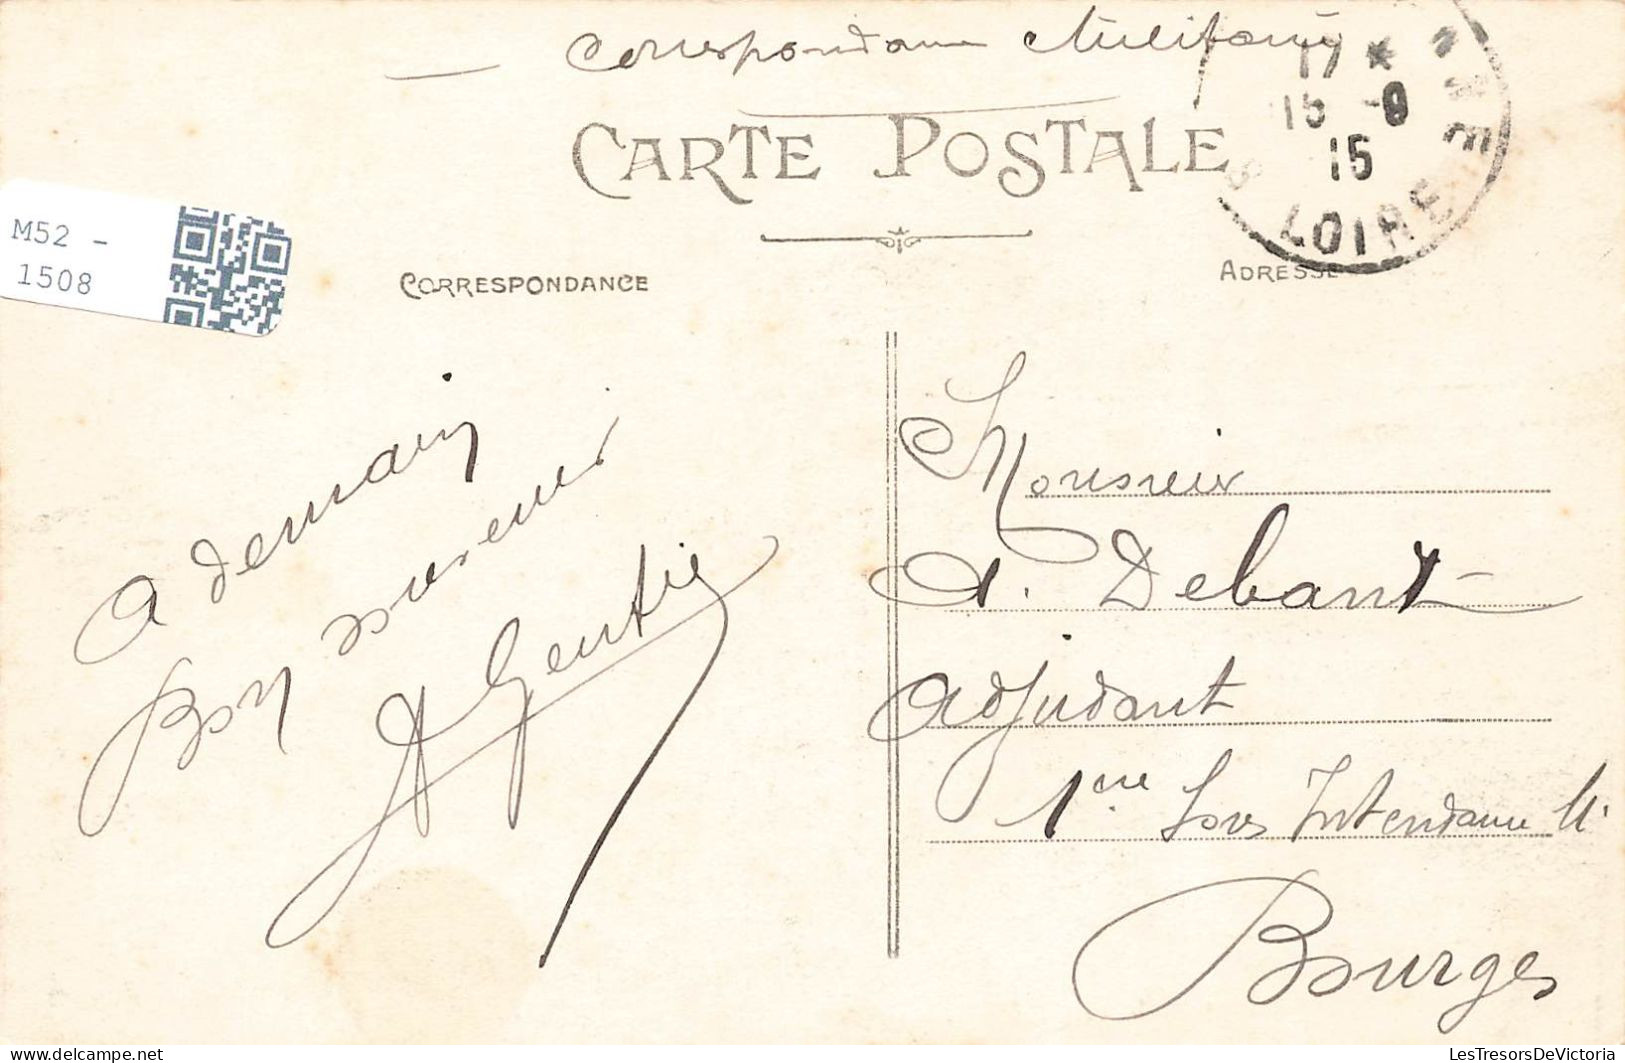 Correspondance Militaire
CARTE POSTALE
17 *
15 -9
15
LOIRE
M52 -
1508
CORRESPONDANCE
ADRESSE
A demain
Bon souvenir
A Gentil
Monsieur
A. Debant
Adjudant
1ere Sous Intendance M.
Bourges
LesTresorsDeVictoria
www.delcampe.net